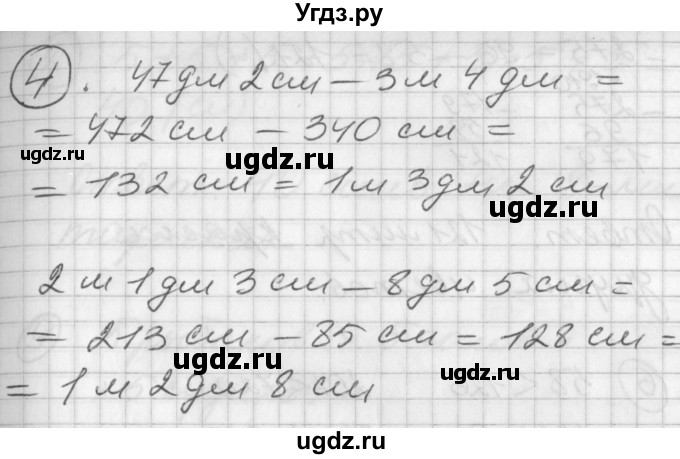 Угдз.ру
4. 47 дм 2 см – 3 м 4 дм =
= 472 см – 340 см =
ugdz.ru
ugdz.ru
= 132 см = 1 м 3 дм 2 см
ugdz.ru
2 м 1 дм 3 см – 8 дм 5 см =
= 213 см – 85 см = 128 см =
ugdz.ru
ugdz.ru
= 1 м 2 дм 8 см
ugdz.ru